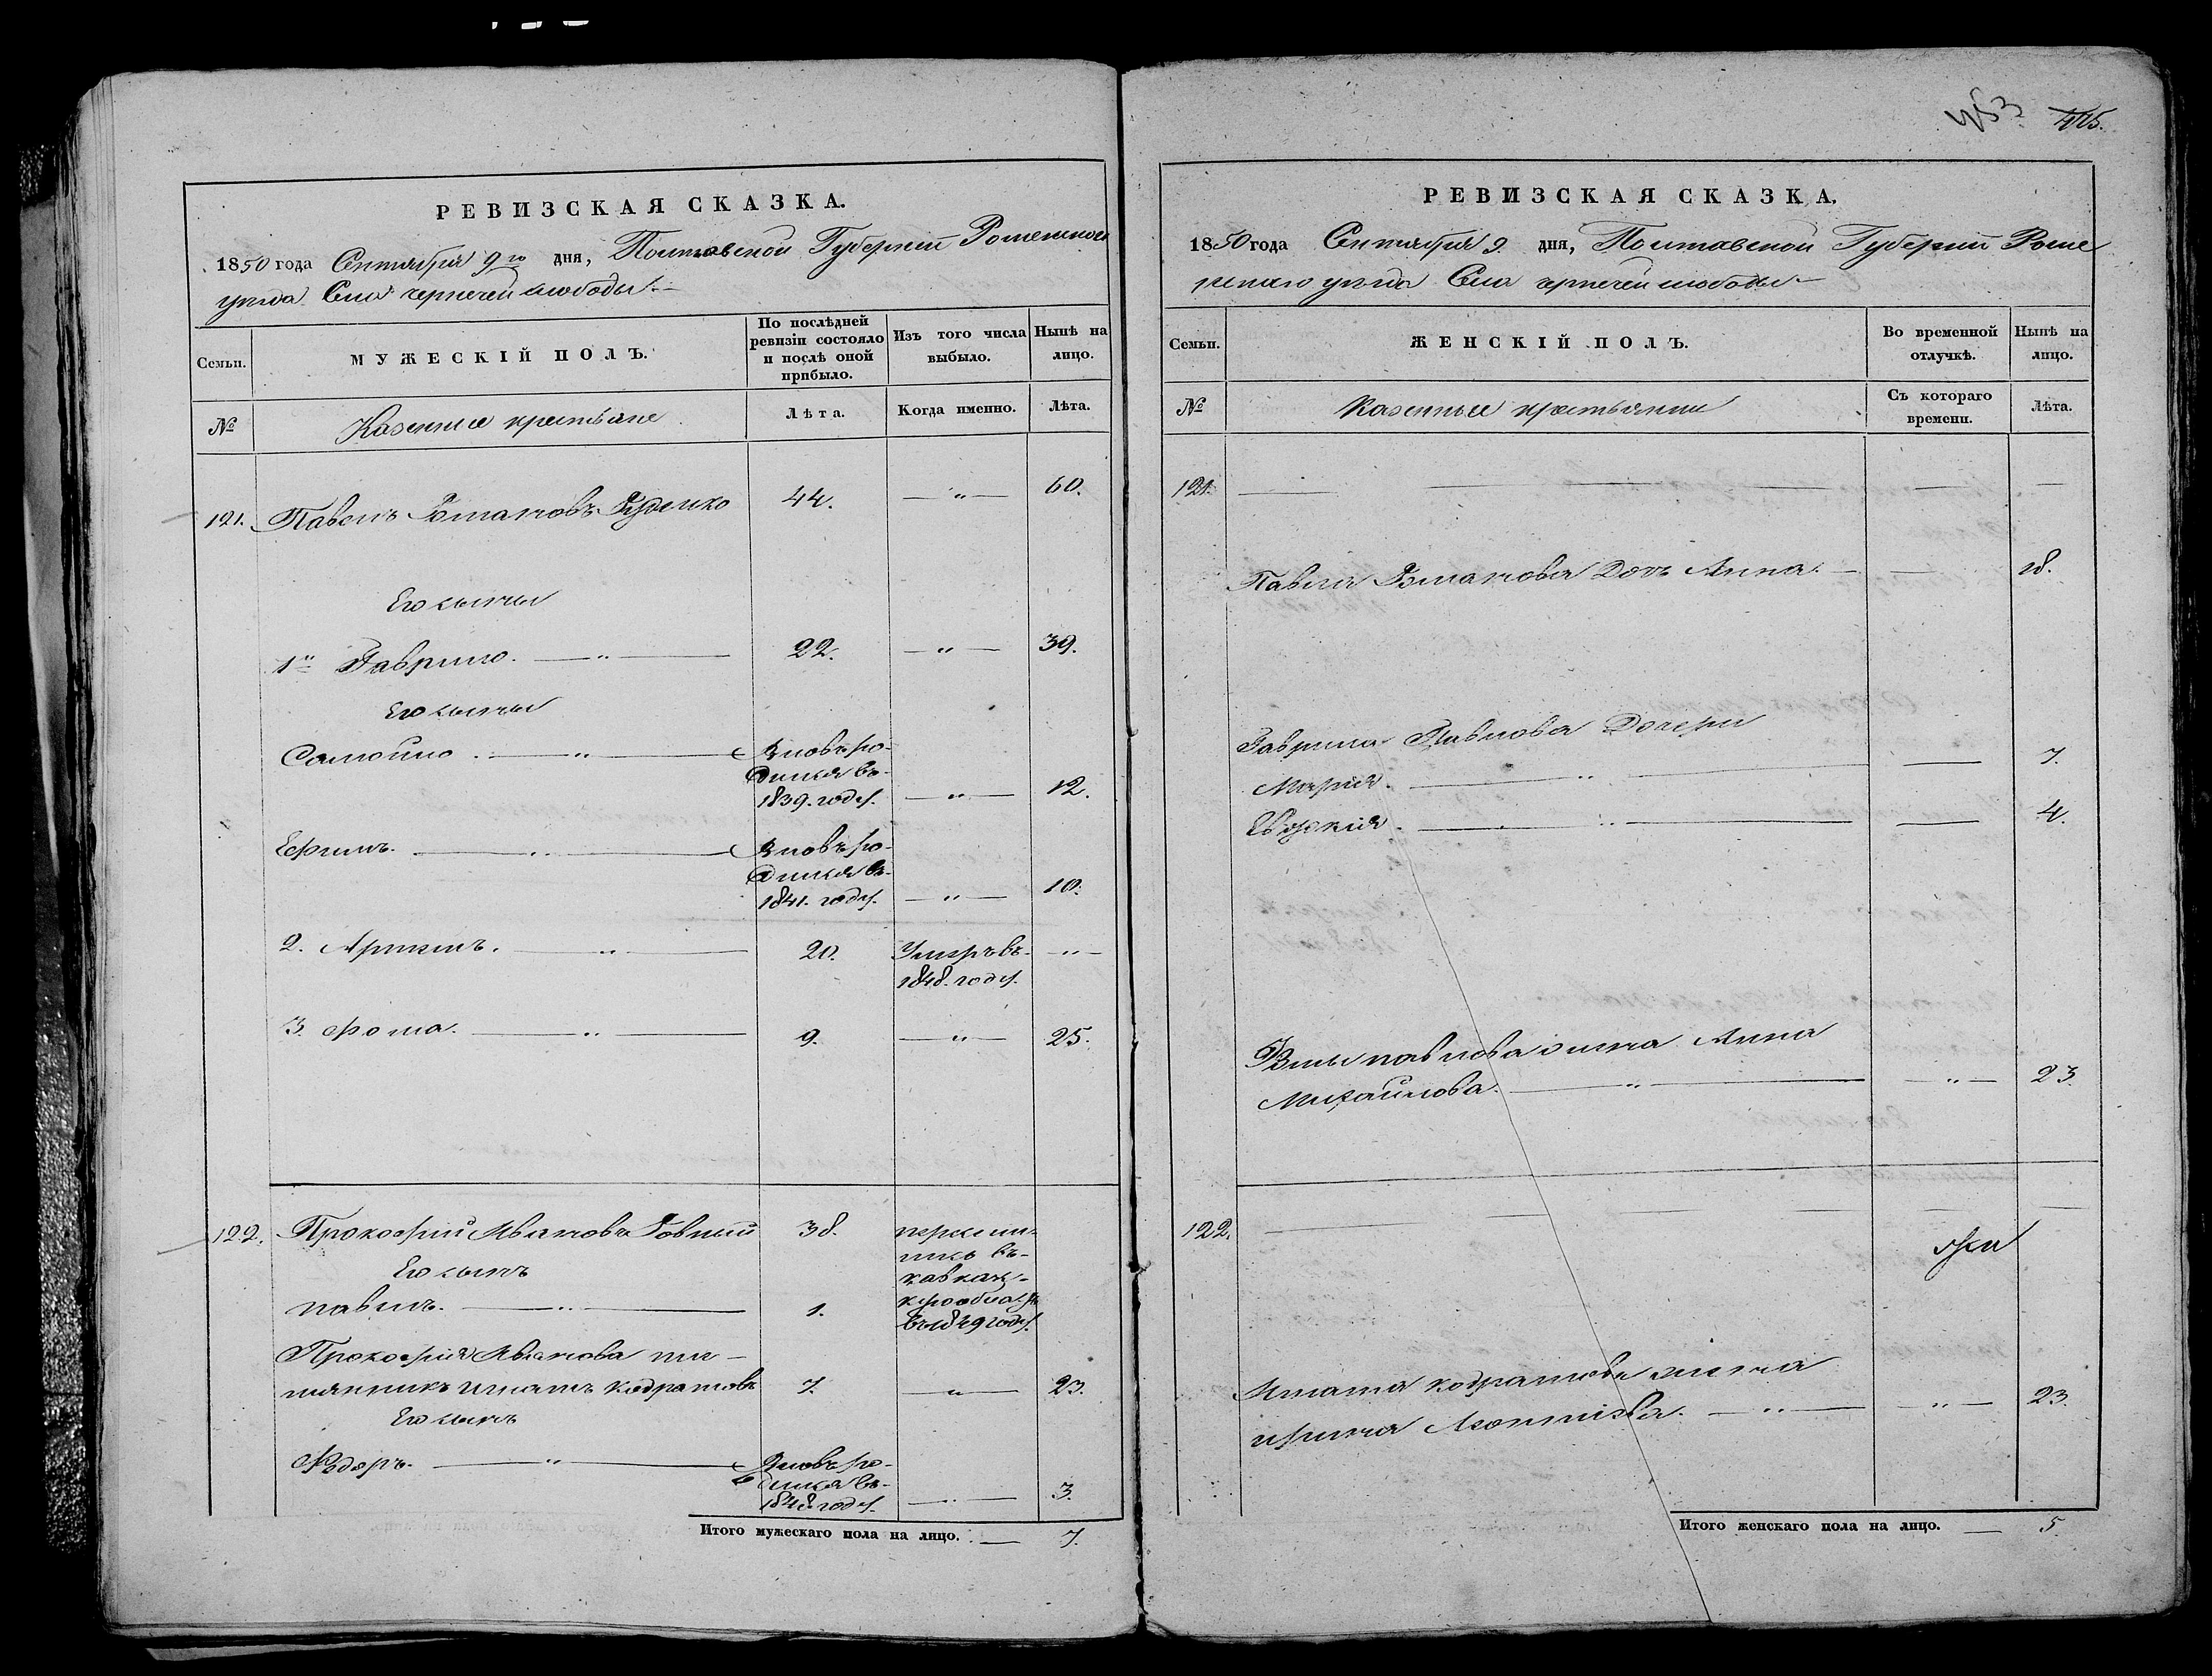 483 445.
РЕВИЗСКАЯ СКАЗКА.
1850 года Сентября 9го дня, Полтавской Губерніи Роменскаго
уезда Села чернечей слободы
Семьи.
МУЖЕСКІЙ ПОЛЪ.
По послѣдней ревизіи состояло и послѣ оной прибыло.
Изъ того числа выбыло.
Нынѣ на лицо.
№
Казенные крестьяне
Лѣта.
Когда именно.
Лѣта.
121. Павелъ Романовъ 44. — " — 60.
Его сыны
1й Гаврило. — " — 22. — " — 39.
Его сыны
Самойло. — " — вновь ро-
дился въ
1839. году. — " — 12.
Ефимъ. — " — вновь ро-
дился въ
1841. году. — " — 10.
2. Артемъ. — " — 20. Умеръ въ — " —
1848. году.
3. Фома. — " — 9. — " — 25.
122. Прокофій Ивановъ Ровный 38. пересели-
лись въ
Его сынъ
кавказ-
павелъ. — " — 1. кую област
въ 1849 году.
Прокофія Иванова пле-
мянникъ игнатъ кодратовъ 7. — " — 23.
Его сынъ
Федоръ. — " — вновь ро-
дился въ
1848. году. — " — 3.
Итого мужескаго пола на лицо. — 7.
РЕВИЗСКАЯ СКАЗКА.
1850 года Сентября 9. дня, Полтавской Губерніи Роме
нскаго уезда Села чернечей слободы
Семьи.
ЖЕНСКІЙ ПОЛЪ.
Во временной отлучкѣ.
Нынѣ на лицо.
№
Казенные крестьянки
Съ котораго времени.
Лѣта.
121. — — — — —
Павла Романова Дочь Анна. — — 18.
Гаврила Павлова Дочери
Мария. — " — — 7.
Евдокия. — " — — 4.
Фомы павлова жена Анна
Михайлова. — " — " — 23.
122. — — — —
Игната кодратова жена
ирина Леонтіева. — " — " — 23.
Итого женскаго пола на лицо. — 5.